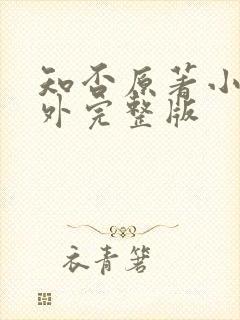 知否原著小
外完整版
衣青箬